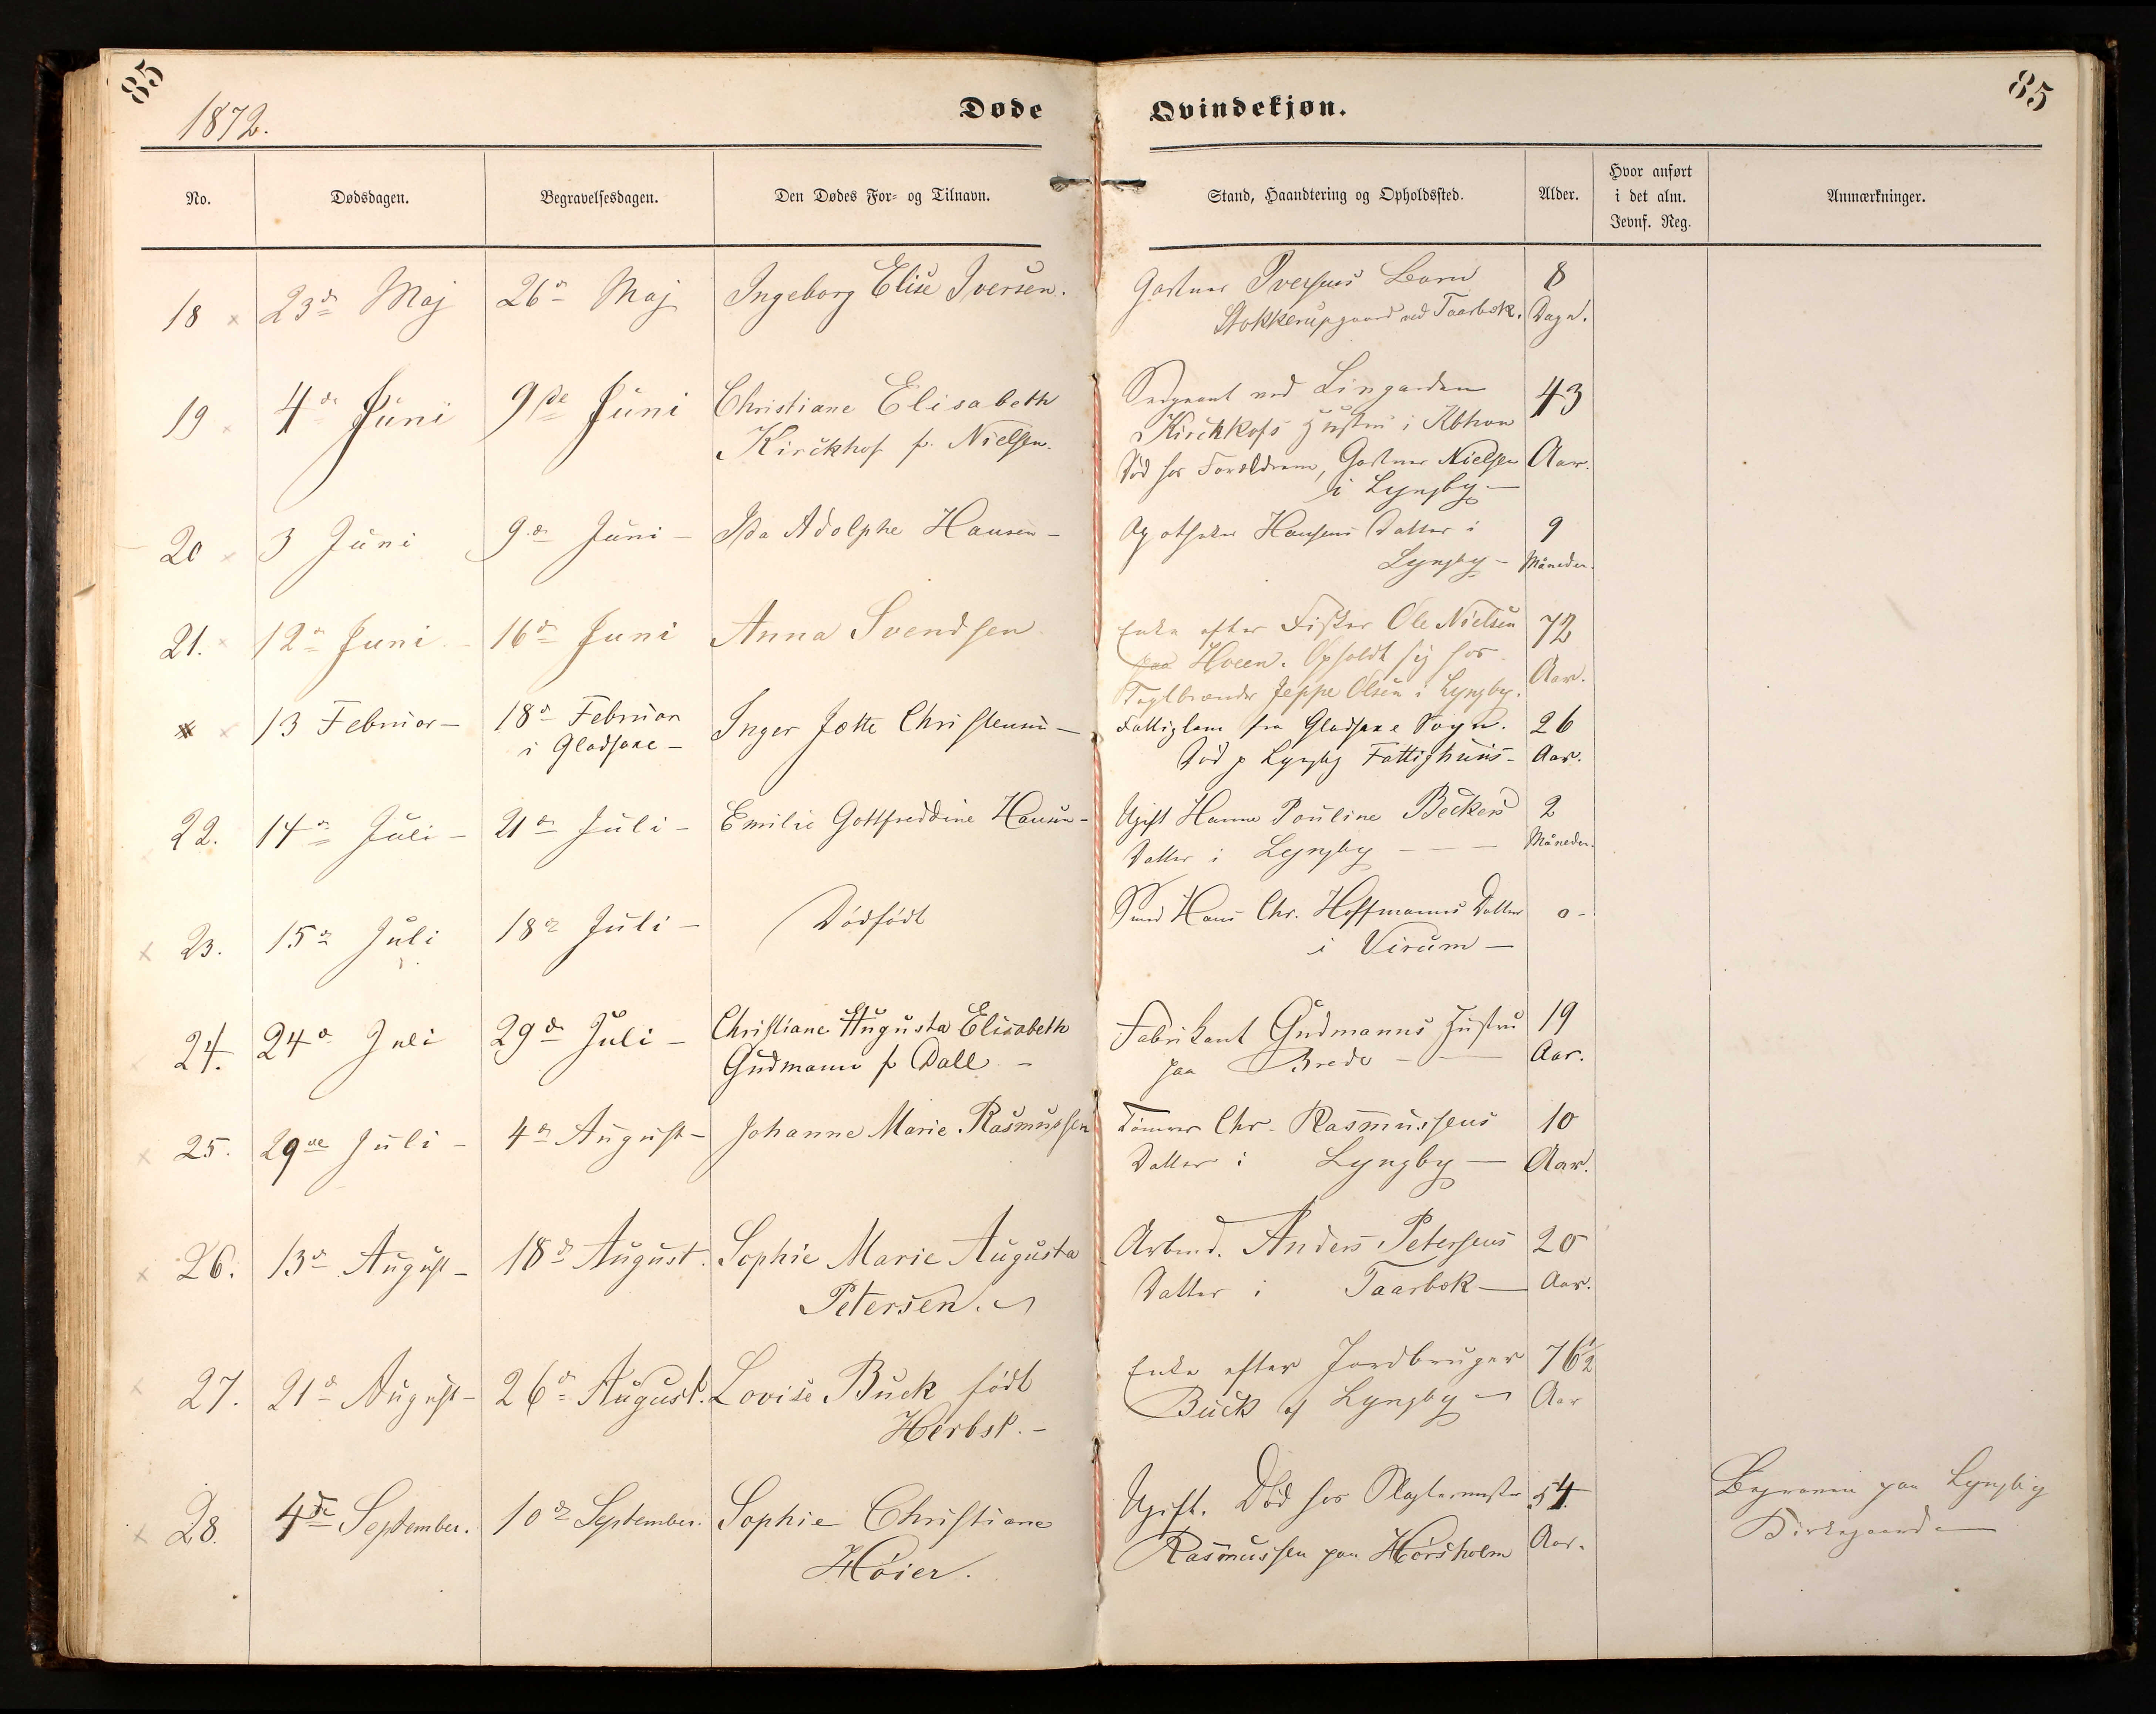 85
1872.
Døde Qvindekjøn.
85
No. Dødsdagen. Begravelsesdagen. Den Dødes For- og Tilnavn. Stand, Haandtering og Opholdssted. Alder. Hvor anført i det alm. Jevnf. Reg. Anmærkninger.
18 × 23de Maj 26de Maj Ingeborg Elise Iversen. Gartner Iversens Barn 8
Stokkerupgaard ved Taarbæk. Dage.
19 × 4de Juni 9de Juni Christiane Elisabeth Sergeant ved Livgarden 43
Kirckhof f. Nielsen. Kirckhofs Hustru i Kbhvn
Død hos Forældrene, Gartner Nielsen Aar.
i Lyngby —
20 × 3 Juni 9de Juni — Ida Adolphe Hansen — Apotheker Hansens Datter i 9
Lyngby — Måneder.
21. × 12de Juni 16de Juni Anna Svendsen Enke efter Fisker Ole Nielsen 72
paa Hveen. Opholdt sig hos Aar.
Teglbrænder Jeppe Olsen i Lyngby.
× 13 Februar — 18de Februar Inger Jætte Christensen — Fattiglem fra Gladsaxe Sogn. 26
i Gladsaxe — Død p Lyngby Fattighuus — Aar.
22. 14de Juli — 21de Juli — Emilie Gottfreddine Hansen — Ugift Hanne Pouline Beckers 2
Datter i Lyngby — — — Måneder.
× 23. 15de Juli 18de Juli — Dødfødt Smed Hans Chr. Hoffmanns Datter 0 -
i Virum —
24. 24de Juli 29de Juli — Christiane Augusta Elisabeth Fabrikant Gudmanns Hustru 19
Gudmann f. Dall — paa Brede — — Aar.
× 25. 29de Juli — 4de August — Johanne Marie Rasmussen Tømrer Chr. Rasmussens 10
Datter i Lyngby — Aar.
× 26. 13de August — 18de August. Sophie Marie Augusta Arbmd. Anders Petersens 20
Petersen. Datter i Taarbæk — Aar.
× 27. 21de August — 26de August. Lovise Buck født Enke efter Jordbruger 76½
Herbst. — Buck af Lyngby — Aar
× 28. 4de September. 10de September. Sophie Christiane Ugift. Død hos Slagtermester 54 Begraven paa Lyngby
Høier. Rasmussen paa Hørsholm Aar. Kirkegaard —